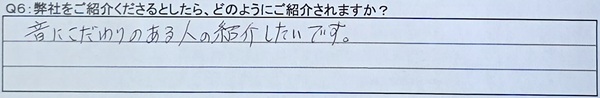 Q6：弊社をご紹介くださるとしたら、どのようにご紹介されますか？
音にこだわりのある人の紹介したいです。